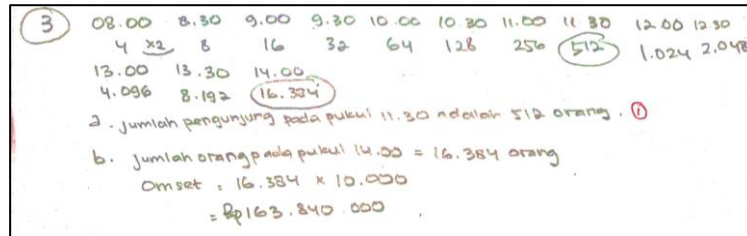 3 08.00 8.30 9.00 9.30 10.00 10.30 11.00 11.30 12.00 12.30
4 x2 8 16 32 64 128 256 512 1.024 2.048
13.00 13.30 14.00
4.096 8.192 16.384
a. jumlah pengunjung pada pukul 11.30 adalah 512 orang. 1
b. jumlah orang pada pukul 14.00 = 16.384 orang
Omset = 16.384 x 10.000
= Rp163.840.000